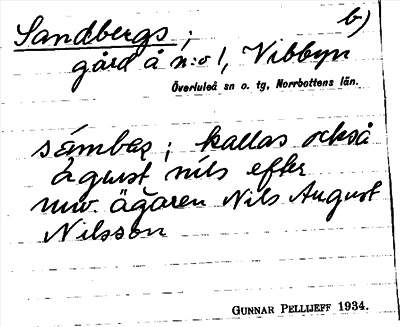 b)
Sandbergs;
gård å n:o 1, Vibbyn
Överluleå sn o. tg, Norrbottens län.
sámbær; kallas också
águst nils efter
nuv. ägaren Nils August
Nilsson
GUNNAR PELLIJEFF 1934.